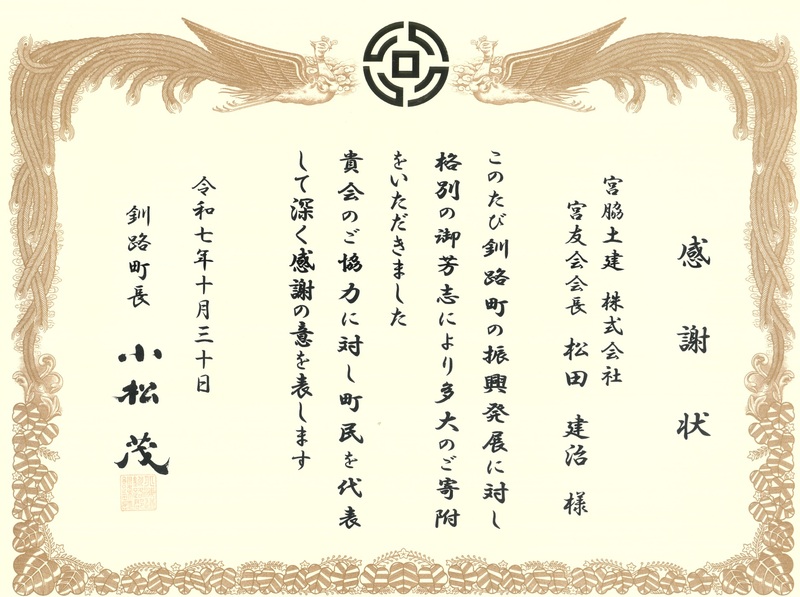 感謝状
宮脇土建 株式会社
宮友会会長 松田 建治 様
このたび釧路町の振興発展に対し
格別の御芳志により多大のご寄附
をいただきました
貴会のご協力に対し町民を代表
して深く感謝の意を表します
令和七年十月三十日
釧路町長 小松 茂